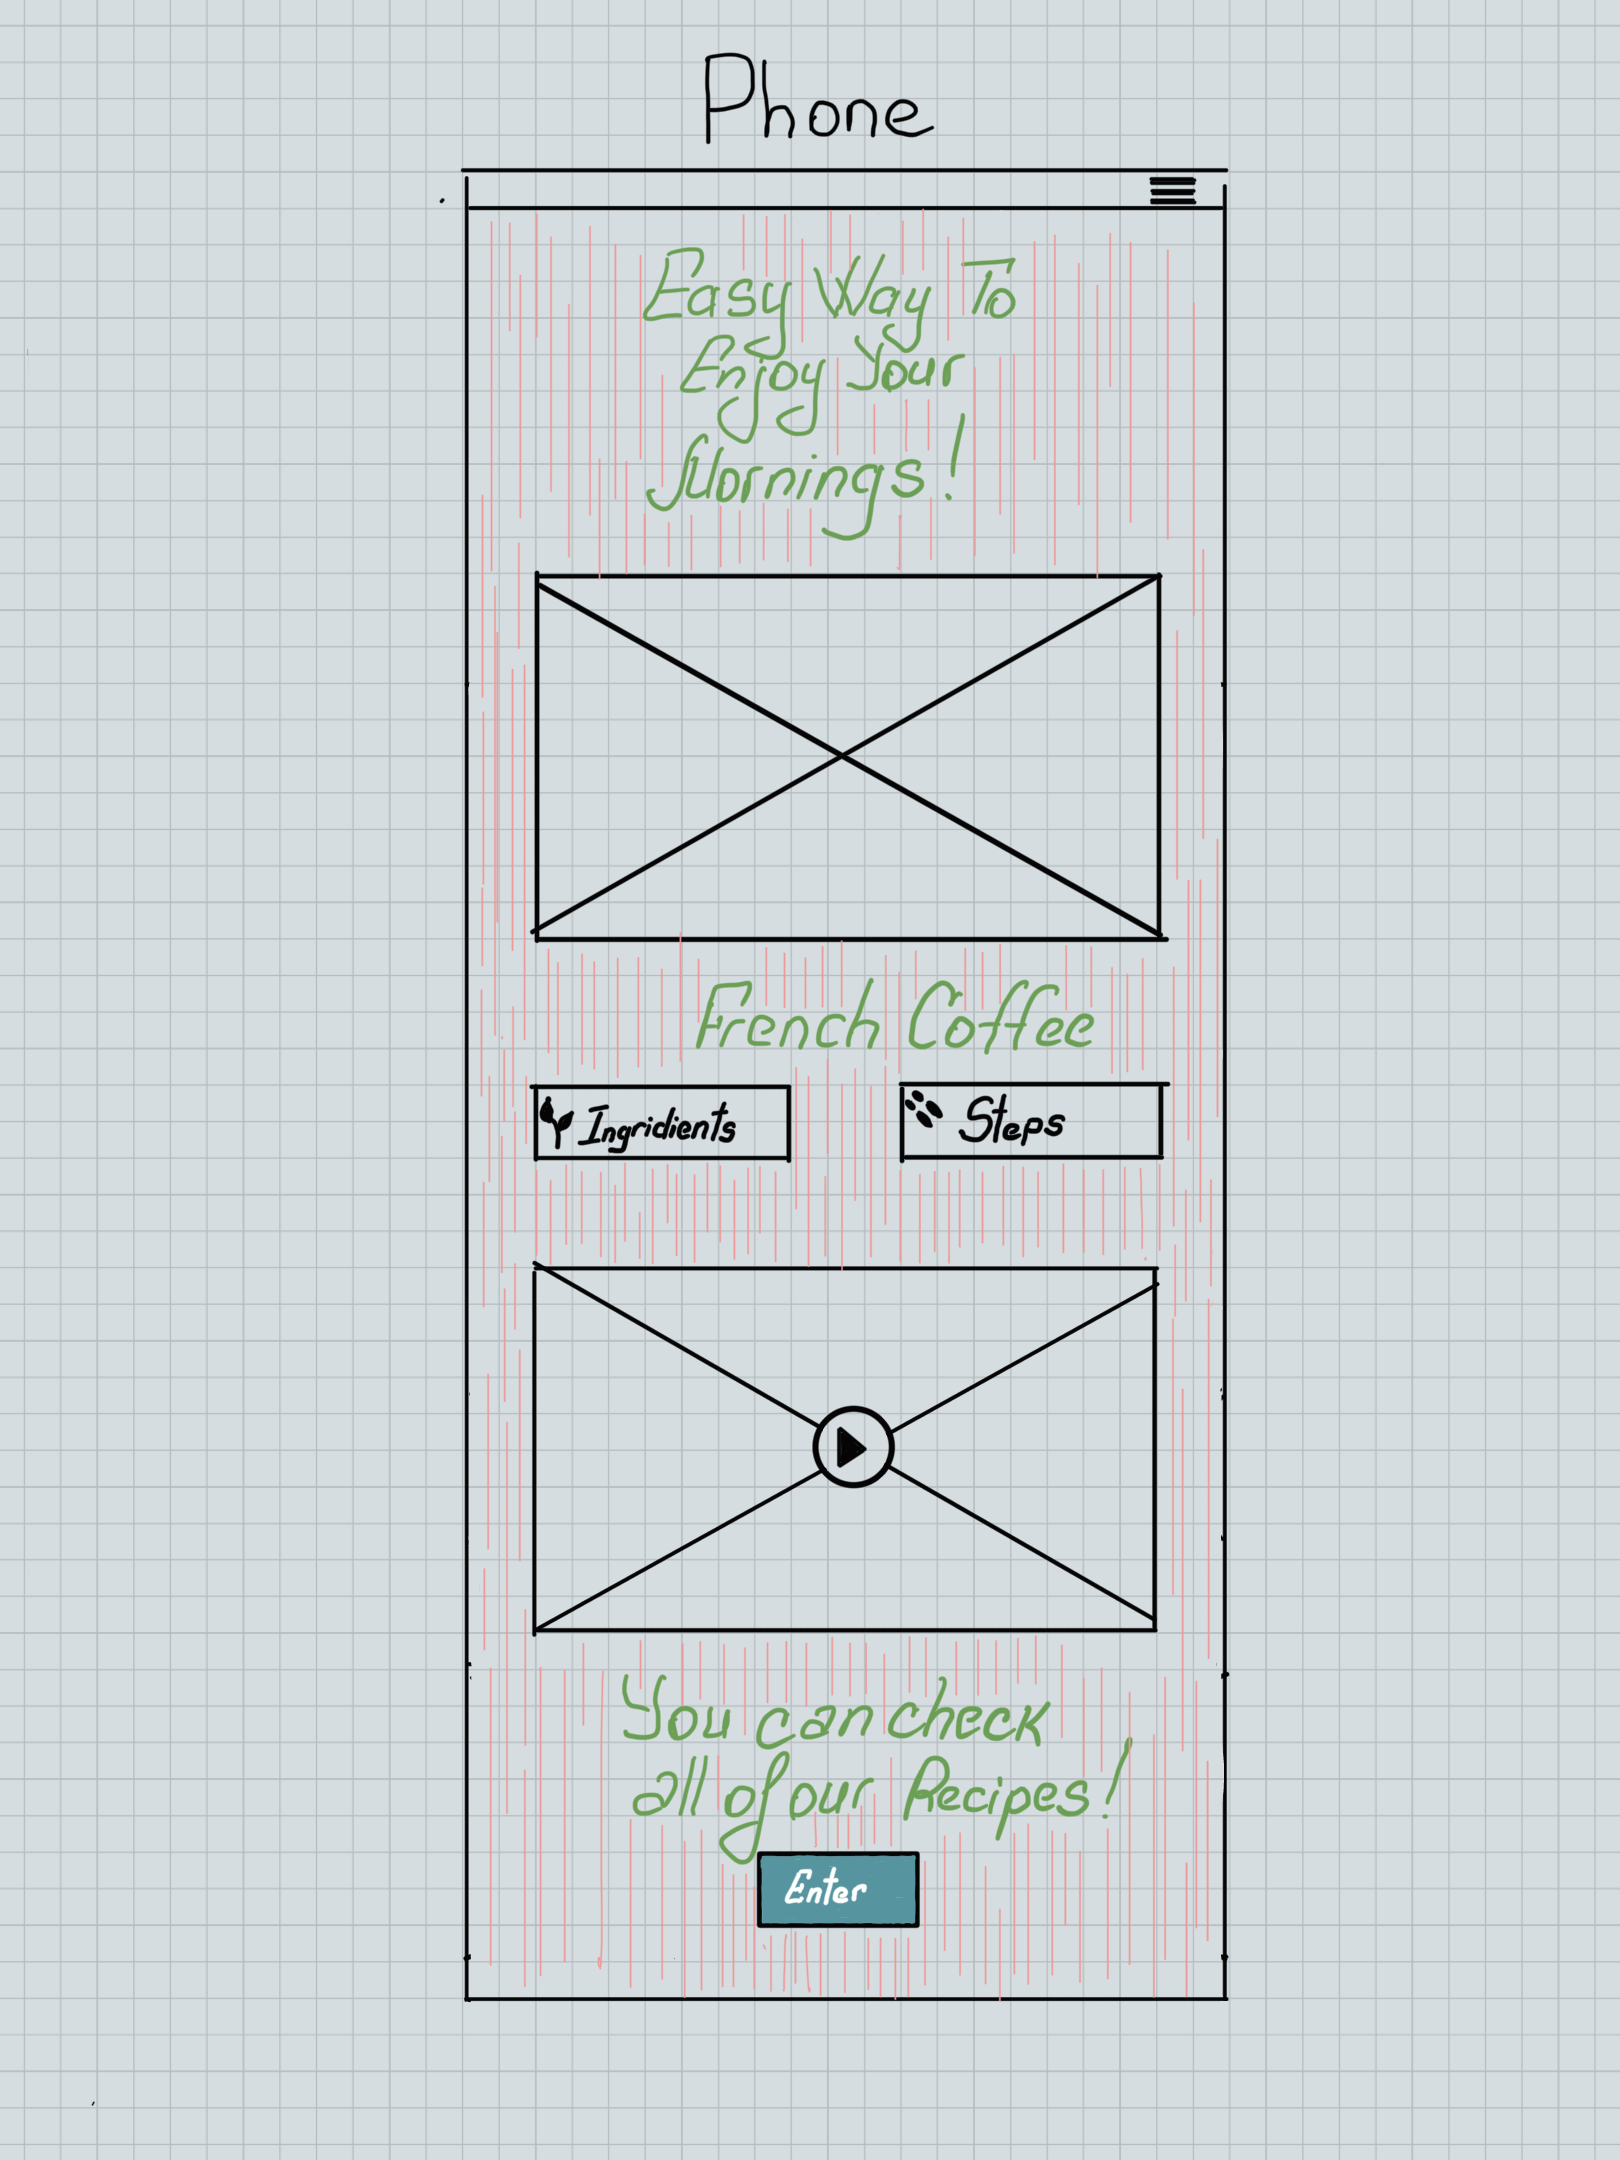 Phone
Easy Way To
Enjoy Your
Mornings!
French Coffee
Ingridients
Steps
You can check
all of our Recipes!
Enter